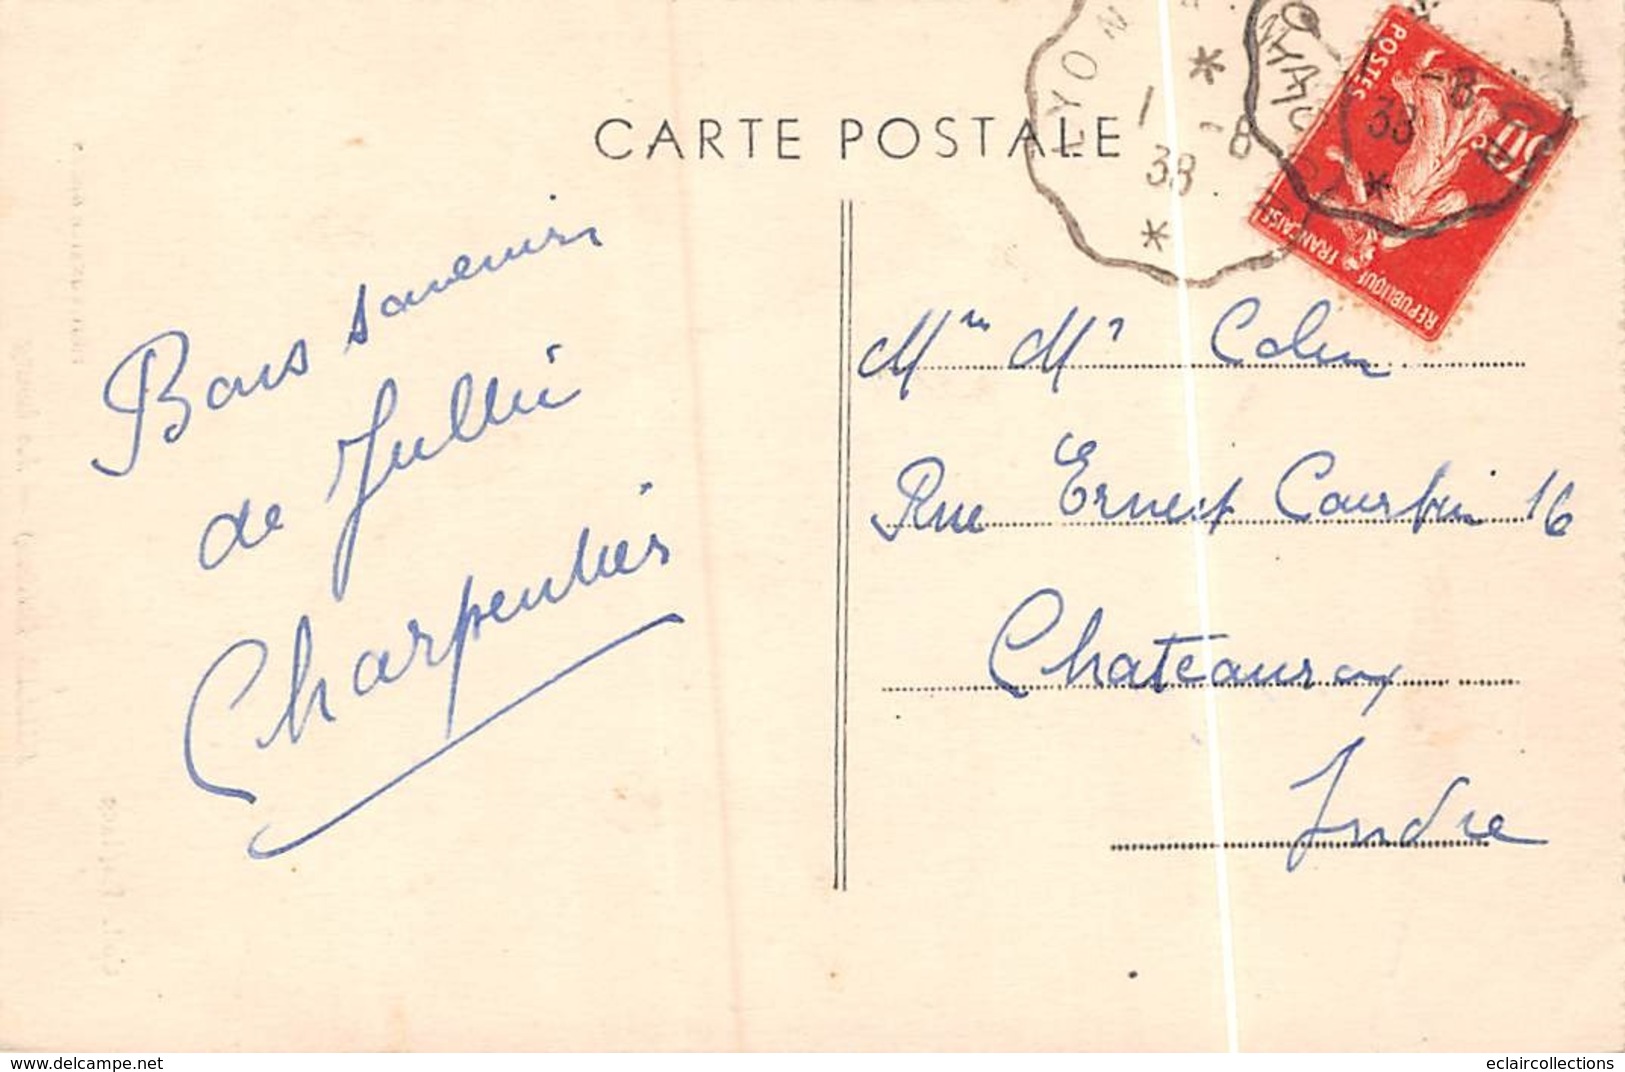 CARTE POSTALE
LYON
1 -8
38
-8
38
POSTES
REPUBLIQUE FRANÇAISE
Bons souvenirs
de Jullié
Charpentier
Mme Mr Colin
Rue Ernest Courbin 16
Chateauroux
Indre
www.delcampe.net
eclaircollections